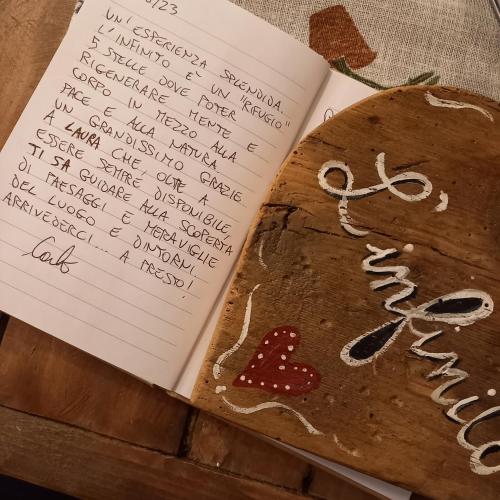 /23
UN'ESPERIENZA SPLENDIDA...
L'INFINITO E' UN "RIFUGIO"
5 STELLE DOVE POTER
RIGENERARE MENTE E
CORPO IN MEZZO ALLA
PACE E ALLA NATURA.
UN GRANDISSIMO GRAZIE
A LAURA CHE, OLTRE A
ESSERE SEMPRE DISPONIBILE,
TI SA GUIDARE ALLA SCOPERTA
DI PAESAGGI E MERAVIGLIE
DEL LUOGO E DINTORNI.
ARRIVEDERCI.... A PRESTO!
Carlo
L'infinito